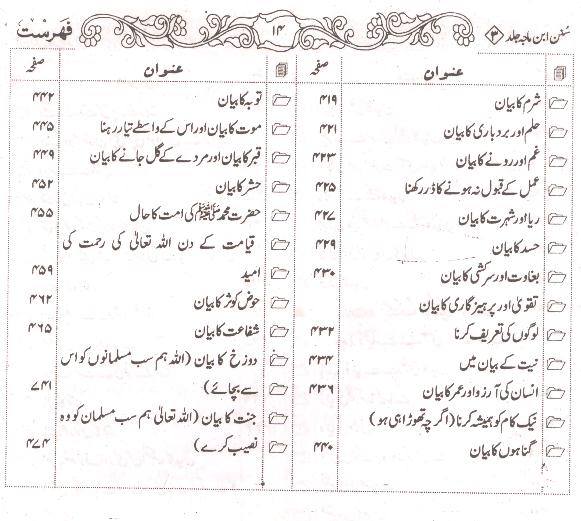 سُنن ابن ماجہ جلد ۳
۱۴
فہرست
عنوان صفحہ
شرم کا بیان ۴۱۹
حلم اور بردباری کا بیان ۴۲۱
غم اور رونے کا بیان ۴۲۳
عمل کے قبول نہ ہونے کا ڈر رکھنا ۴۲۵
ریا اور شہرت کا بیان ۴۲۷
حسد کا بیان ۴۲۹
بغاوت اور سرکشی کا بیان ۴۳۰
تقویٰ اور پرہیزگاری کا بیان
لوگوں کی تعریف کرنا ۴۳۲
نیت کے بیان میں ۴۳۴
انسان کی آرزو اور عمر کا بیان ۴۳۶
نیک کام کو ہمیشہ کرنا (اگرچہ تھوڑا ہی ہو)
گناہوں کا بیان ۴۴۰
عنوان صفحہ
توبہ کا بیان ۴۴۲
موت کا بیان اور اس کے واسطے تیار رہنا ۴۴۵
قبر کا بیان اور مردے کے گل جانے کا بیان ۴۴۹
حشر کا بیان ۴۵۲
حضرت محمد ﷺ کی امت کا حال ۴۵۵
قیامت کے دن اللہ تعالیٰ کی رحمت کی
امید ۴۵۹
حوض کوثر کا بیان ۴۶۲
شفاعت کا بیان ۴۶۵
دوزخ کا بیان (اللہ ہم سب مسلمانوں کو اس
سے بچائے) ۷۴۱
جنت کا بیان (اللہ تعالیٰ ہم سب مسلمان کو وہ
نصیب کرے) ۴۷۴